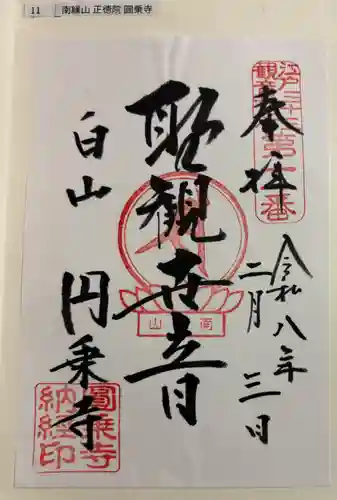 11 南縁山 正徳院 圓乗寺
奉拝
江戸三十三
観音
第十一番
令和八年
二月三日
聖観世音
南山
白山
円乗寺
圓乗寺
納経印